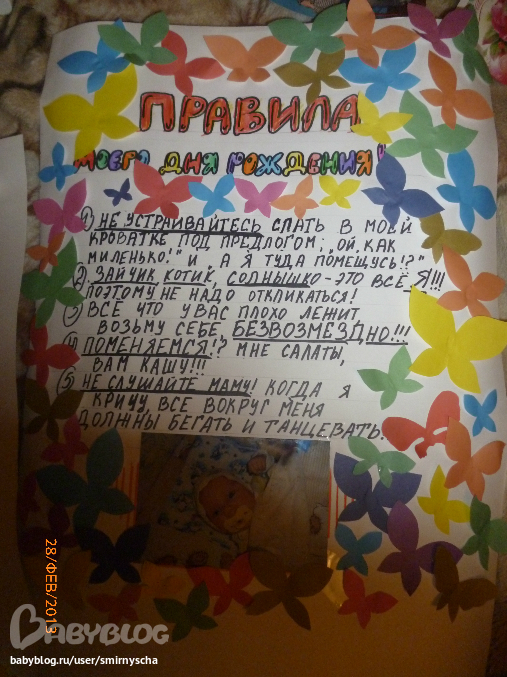 ПРАВИЛА
моего дня рождения!
1) НЕ УСТРАИВАЙТЕСЬ СПАТЬ В МОЕЙ
КРОВАТКЕ ПОД ПРЕДЛОГОМ: „ОЙ, КАК
МИЛЕНЬКО!" И „А Я ТУДА ПОМЕЩУСЬ!?"
2) ЗАЙЧИК, КОТИК, СОЛНЫШКО - ЭТО ВСЁ Я!!!
ПОЭТОМУ НЕ НАДО ОТКЛИКАТЬСЯ!
3) ВСЁ ЧТО У ВАС ПЛОХО ЛЕЖИТ
ВОЗЬМУ СЕБЕ, БЕЗВОЗМЕЗДНО!!!
4) ПОМЕНЯЕМСЯ!? МНЕ САЛАТЫ,
ВАМ КАШУ!!!
5) НЕ СЛУШАЙТЕ МАМУ! КОГДА Я
КРИЧУ, ВСЕ ВОКРУГ МЕНЯ
ДОЛЖНЫ БЕГАТЬ И ТАНЦЕВАТЬ.
28/ФЕВ/2013
BABYBLOG
babyblog.ru/user/smirnyscha